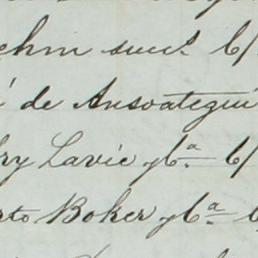 ehm suc.s 6/
de Ansoategui
ry Lavie y Ca 6/
rto Boker y Ca 6